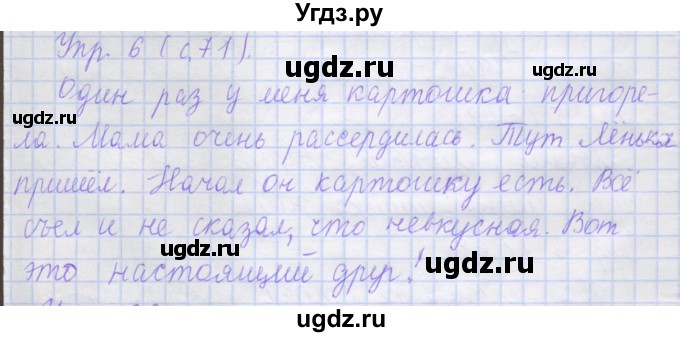 Угдз.ру
Упр. 6 (с,71).
ugdz.ru
ugdz.ru
Один раз у меня картошка пригоре-
ugdz.ru
ла. Мама очень рассердилась. Тут Лёнька
ugdz.ru
пришёл. Начал он картошку есть. Всё
ugdz.ru
съел и не сказал, что невкусная. Вот
ugdz.ru
ugdz.ru
это настоящий друг!
ugdz.ru
ugdz.ru